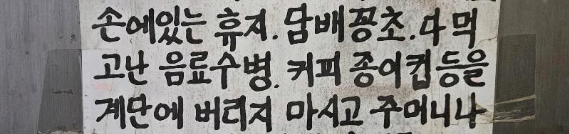 손에있는 휴지. 담배꽁초. 다 먹
고난 음료수병. 커피 종이컵등을
계단에 버리지 마시고 주머니나